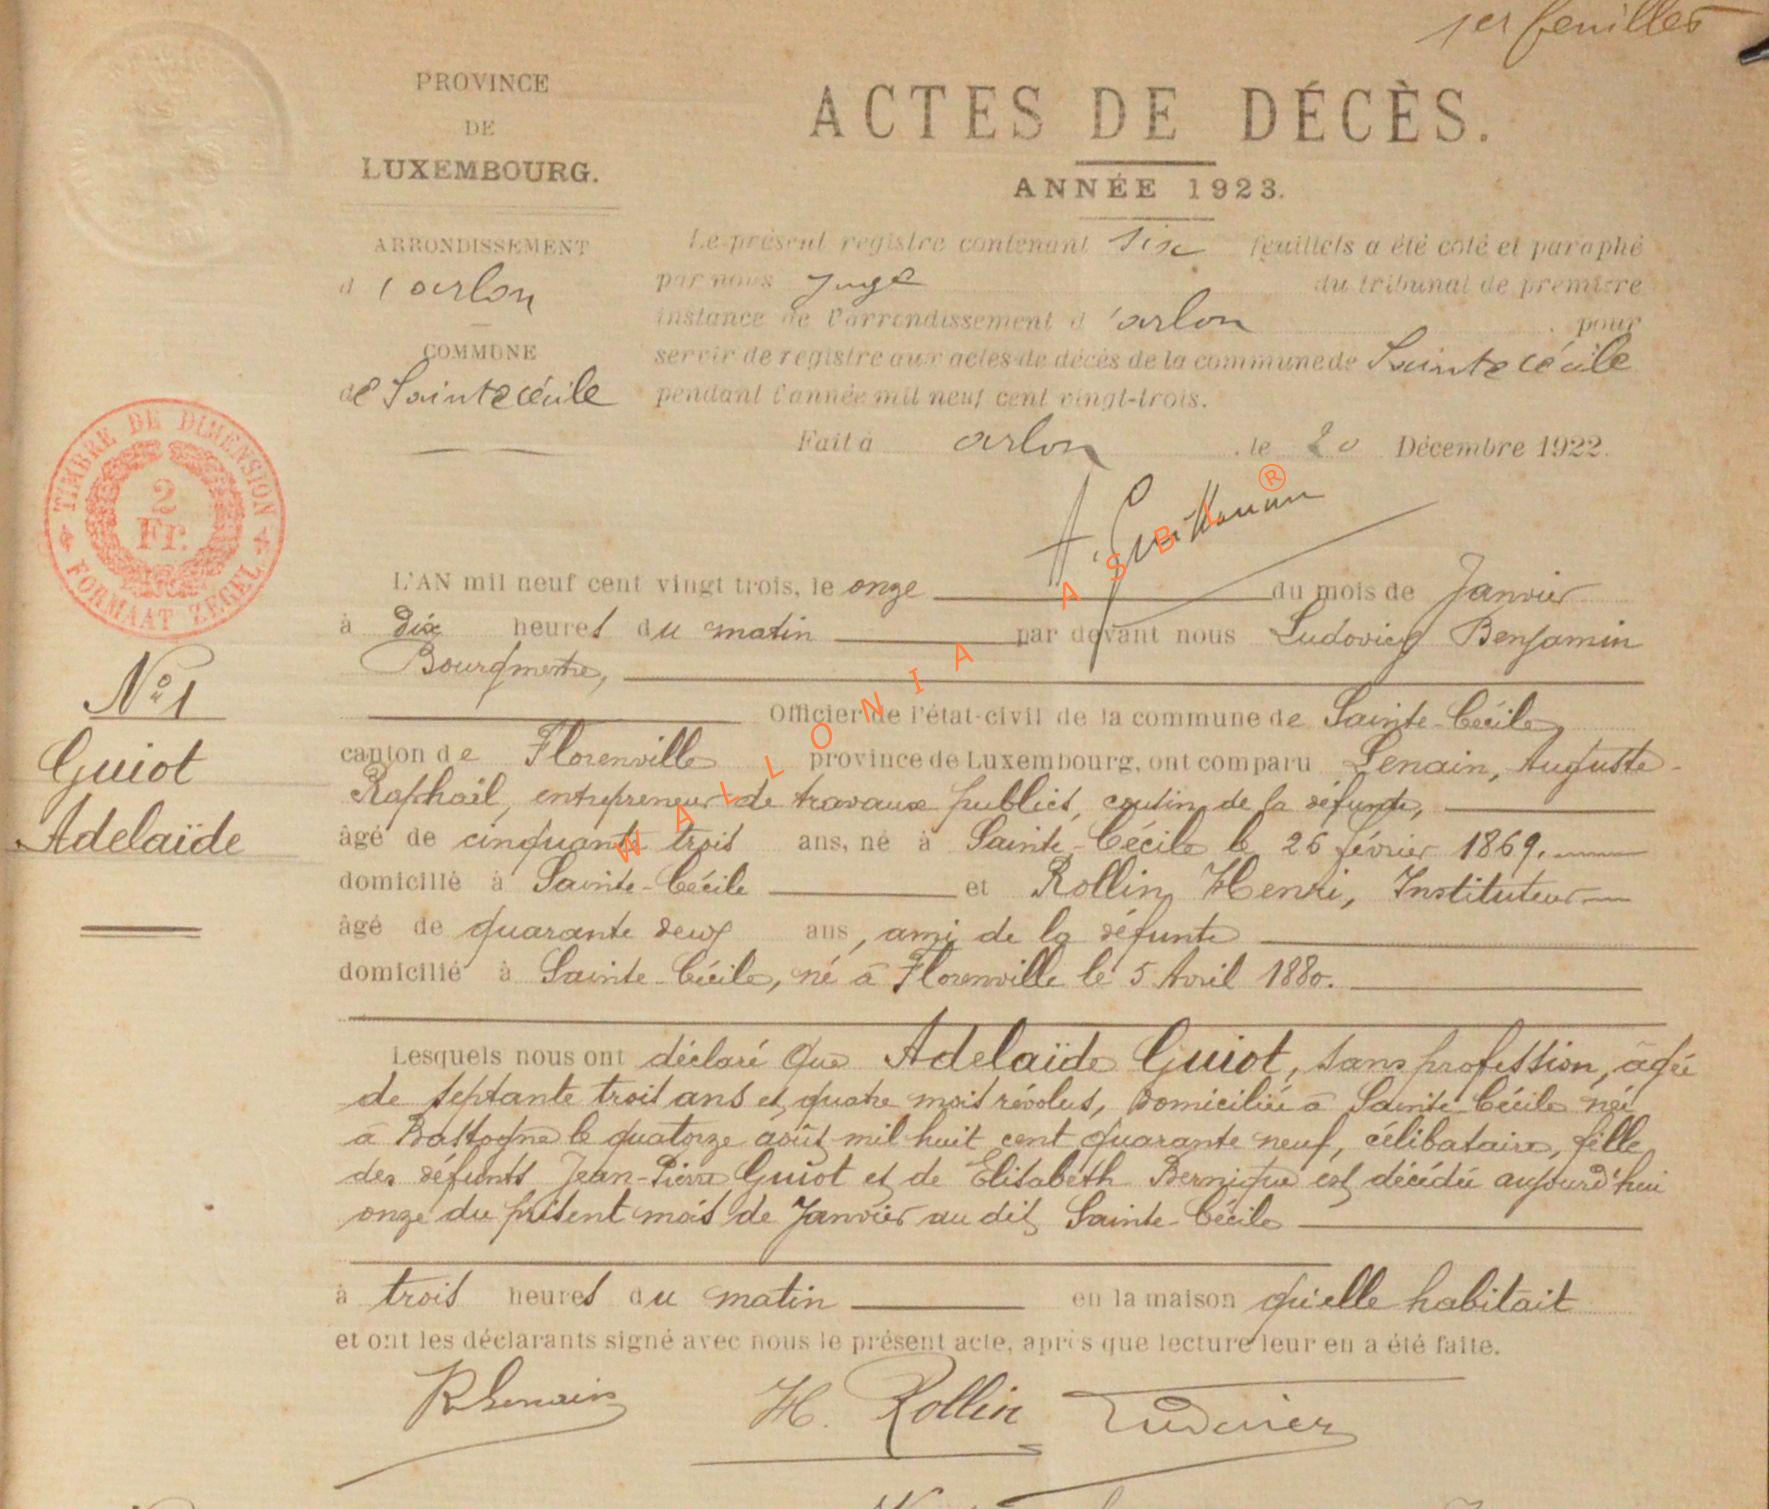 1er feuillet
PROVINCE
DE
LUXEMBOURG.
ARRONDISSEMENT
d'arlon
COMMUNE
de Sainte cécile
ACTES DE DÉCÈS.
ANNÉE 1923.
Le présent registre contenant six feuillets a été coté et paraphé
par nous juge du tribunal de première
instance de l'arrondissement d'arlon pour
servir de registre aux actes de décès de la commune de Sainte cécile
pendant l'année mil neuf cent vingt-trois.
Fait à arlon le 20 Décembre 1922.
TIMBRE DE DIMENSION
2
Fr.
FORMAAT ZEGEL
WALLONIA ASBL ®
N° 1
Guiot
Adelaïde
L'AN mil neuf cent vingt trois, le onze du mois de Janvier
à dix heures du matin par devant nous Ludovicy Benjamin
Bourgmestre,
Officier de l'état-civil de la commune de Sainte-Cécile
canton de Florenville province de Luxembourg, ont comparu Lenain, Auguste-
Raphaël, entrepreneur de travaux publics, cousin de la défunte,
âgé de cinquante trois ans, né à Sainte-Cécile le 26 février 1869.
domicilié à Sainte-Cécile et Rollin Henri, Instituteur
âgé de quarante deux ans, ami de la défunte
domicilié à Sainte-Cécile, né à Florenville le 5 Avril 1880.
Lesquels nous ont déclaré que Adelaïde Guiot, sans profession, âgée
de septante trois ans et quatre mois révolus, domiciliée à Sainte-Cécile née
à Bastogne le quatorze août mil huit cent quarante neuf, célibataire, fille
des défunts Jean-Pierre Guiot et de Elisabeth Bernique est décédée aujourd'hui
onze du présent mois de Janvier au dit Sainte-Cécile
à trois heures du matin en la maison qu'elle habitait
et ont les déclarants signé avec nous le présent acte, après que lecture leur en a été faite.
R Lenain H. Rollin